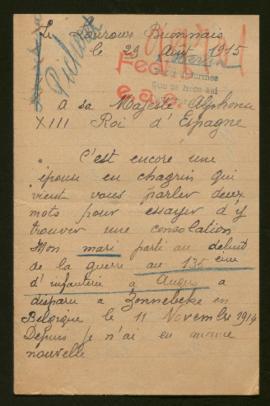 le 29 Août 1915
Pichot
a sa Majesté Alphonse
XIII Roi d'Espagne
C'est encore une
épouse en chagrin qui
vient vous parler deux
mots pour essayer d'y
trouver une consolation
Mon mari parti au début
de la guerre au 135 ème
d'infanterie a Angers a
disparu a Zonnebeke en
Belgique le 11 Novembre 1914
Depuis je n'ai eu aucune
nouvelle